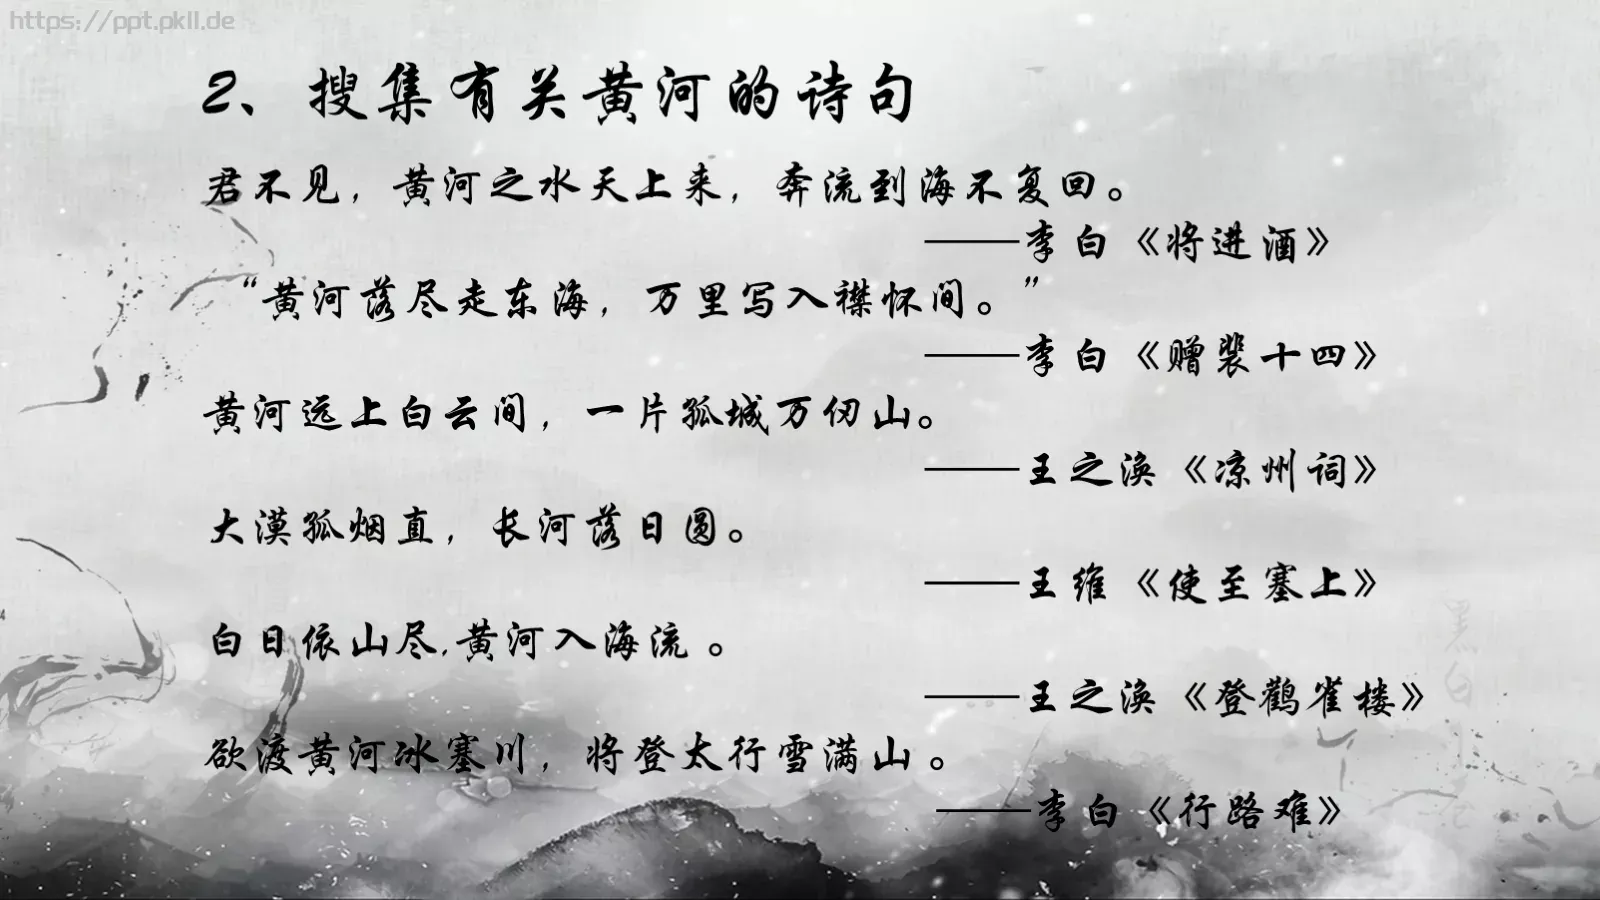 https://ppt.pkll.de
2、搜集有关黄河的诗句
君不见，黄河之水天上来，奔流到海不复回。
——李白《将进酒》
“黄河落尽走东海，万里写入襟怀间。”
——李白《赠裴十四》
黄河远上白云间，一片孤城万仞山。
——王之涣《凉州词》
大漠孤烟直，长河落日圆。
——王维《使至塞上》
白日依山尽,黄河入海流 。
——王之涣《登鹳雀楼》
欲渡黄河冰塞川，将登太行雪满山 。
——李白《行路难》